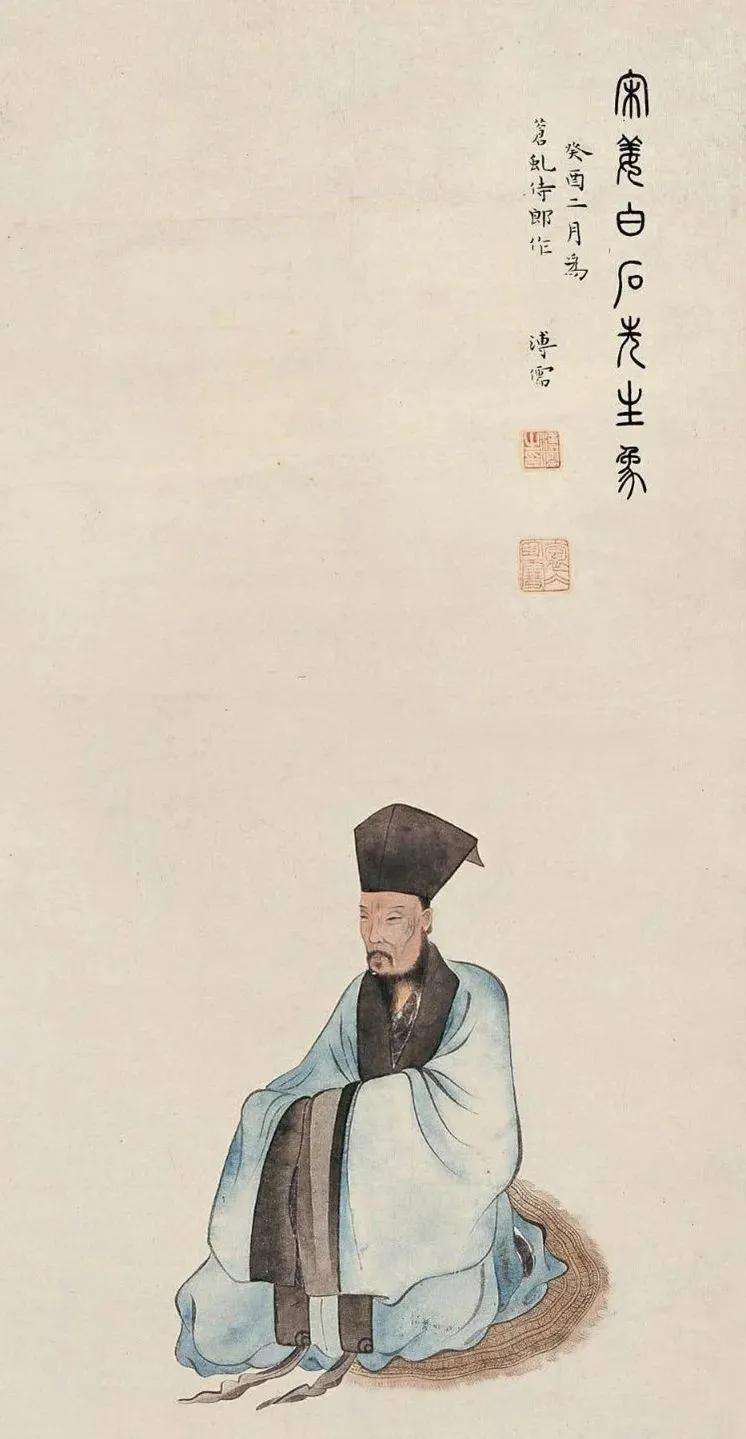 宋姜白石先生象
癸酉二月為
蒼虬侍郎作
溥儒